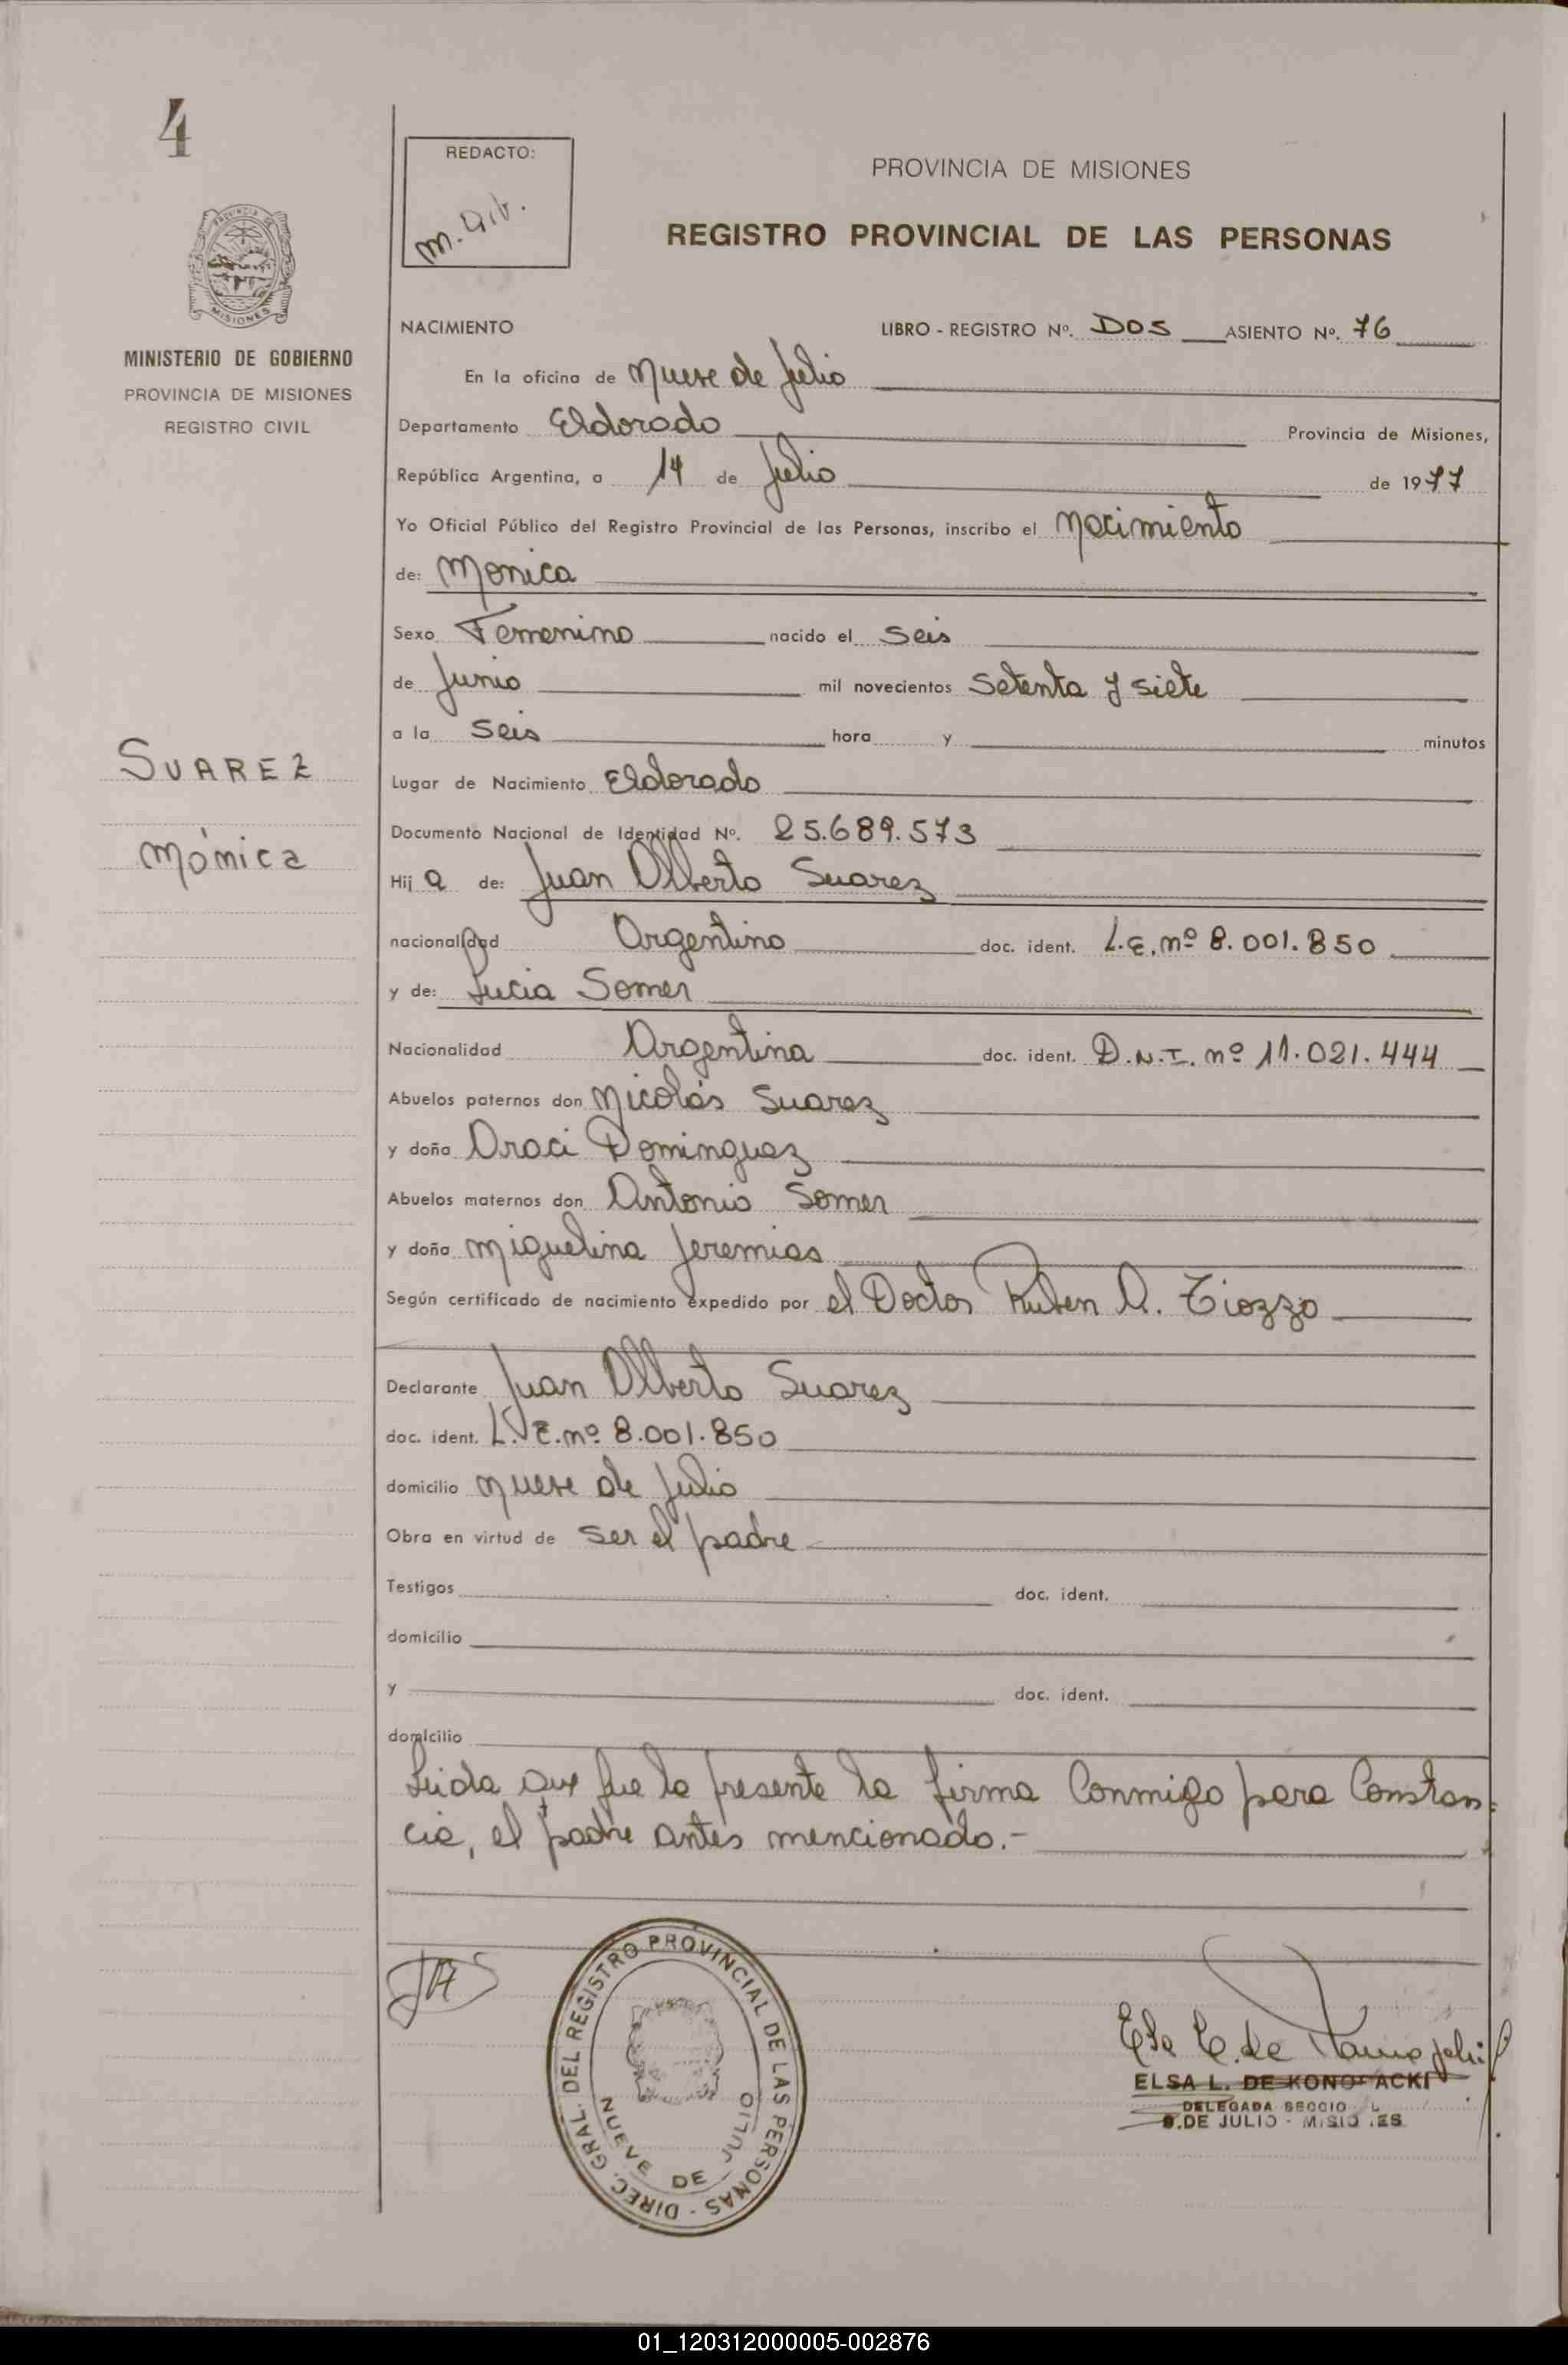 4
REDACTO:
PROVINCIA DE MISIONES
REGISTRO PROVINCIAL DE LAS PERSONAS
MISIONES
MINISTERIO DE GOBIERNO
PROVINCIA DE MISIONES
REGISTRO CIVIL
NACIMIENTO LIBRO - REGISTRO Nº. DOS ASIENTO Nº. 76
En la oficina de Nueve de Julio
Departamento Eldorado Provincia de Misiones,
República Argentina, a 14 de Julio de 1977
Yo Oficial Público del Registro Provincial de las Personas, inscribo el Nacimiento
de: Monica
Sexo Femenino nacido el Seis
de Junio mil novecientos Setenta y siete
a la Seis hora y minutos
SUAREZ
Mónica
Lugar de Nacimiento Eldorado
Documento Nacional de Identidad Nº. 25.689.573
Hij a de: Juan Alberto Suarez
nacionalidad Argentino doc. ident. L.E. nº 8.001.850
y de: Lucia Somer
Nacionalidad Argentina doc. ident. D.N.I. nº 11.021.444
Abuelos paternos don Nicolás Suarez
y doña Oraci Dominguez
Abuelos maternos don Antonio Somer
y doña Miguelina Jeremias
Según certificado de nacimiento expedido por el Doctor Ruben A. Tiozzo
Declarante Juan Alberto Suarez
doc. ident. L.E. nº 8.001.850
domicilio Nueve de Julio
Obra en virtud de ser el padre
Testigos doc. ident.
domicilio
y doc. ident.
domicilio
Leida que fue la presente la firma Conmigo para Constan=
cia, el padre antes mencionado.-
JAS
DIREC. GRAL. DEL REGISTRO PROVINCIAL DE LAS PERSONAS -
NUEVE DE JULIO
ELSA L. DE KONOPACKI
DELEGADA SECCIONAL
9 DE JULIO - MISIONES
01_120312000005-002876